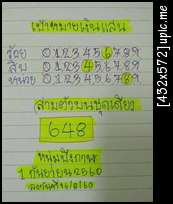 เป้าหมายเงินแสน
ร้อย 0 1 2 3 4 5 6 7 8 9
สิบ 0 1 2 3 4 5 6 7 8 9
หน่วย 0 1 2 3 4 5 6 7 8 9
สามตัวบนชุดเดียว
648
หนุ่มบึงกาฬ
1 กันยายน 2560
[432x572] upic.me